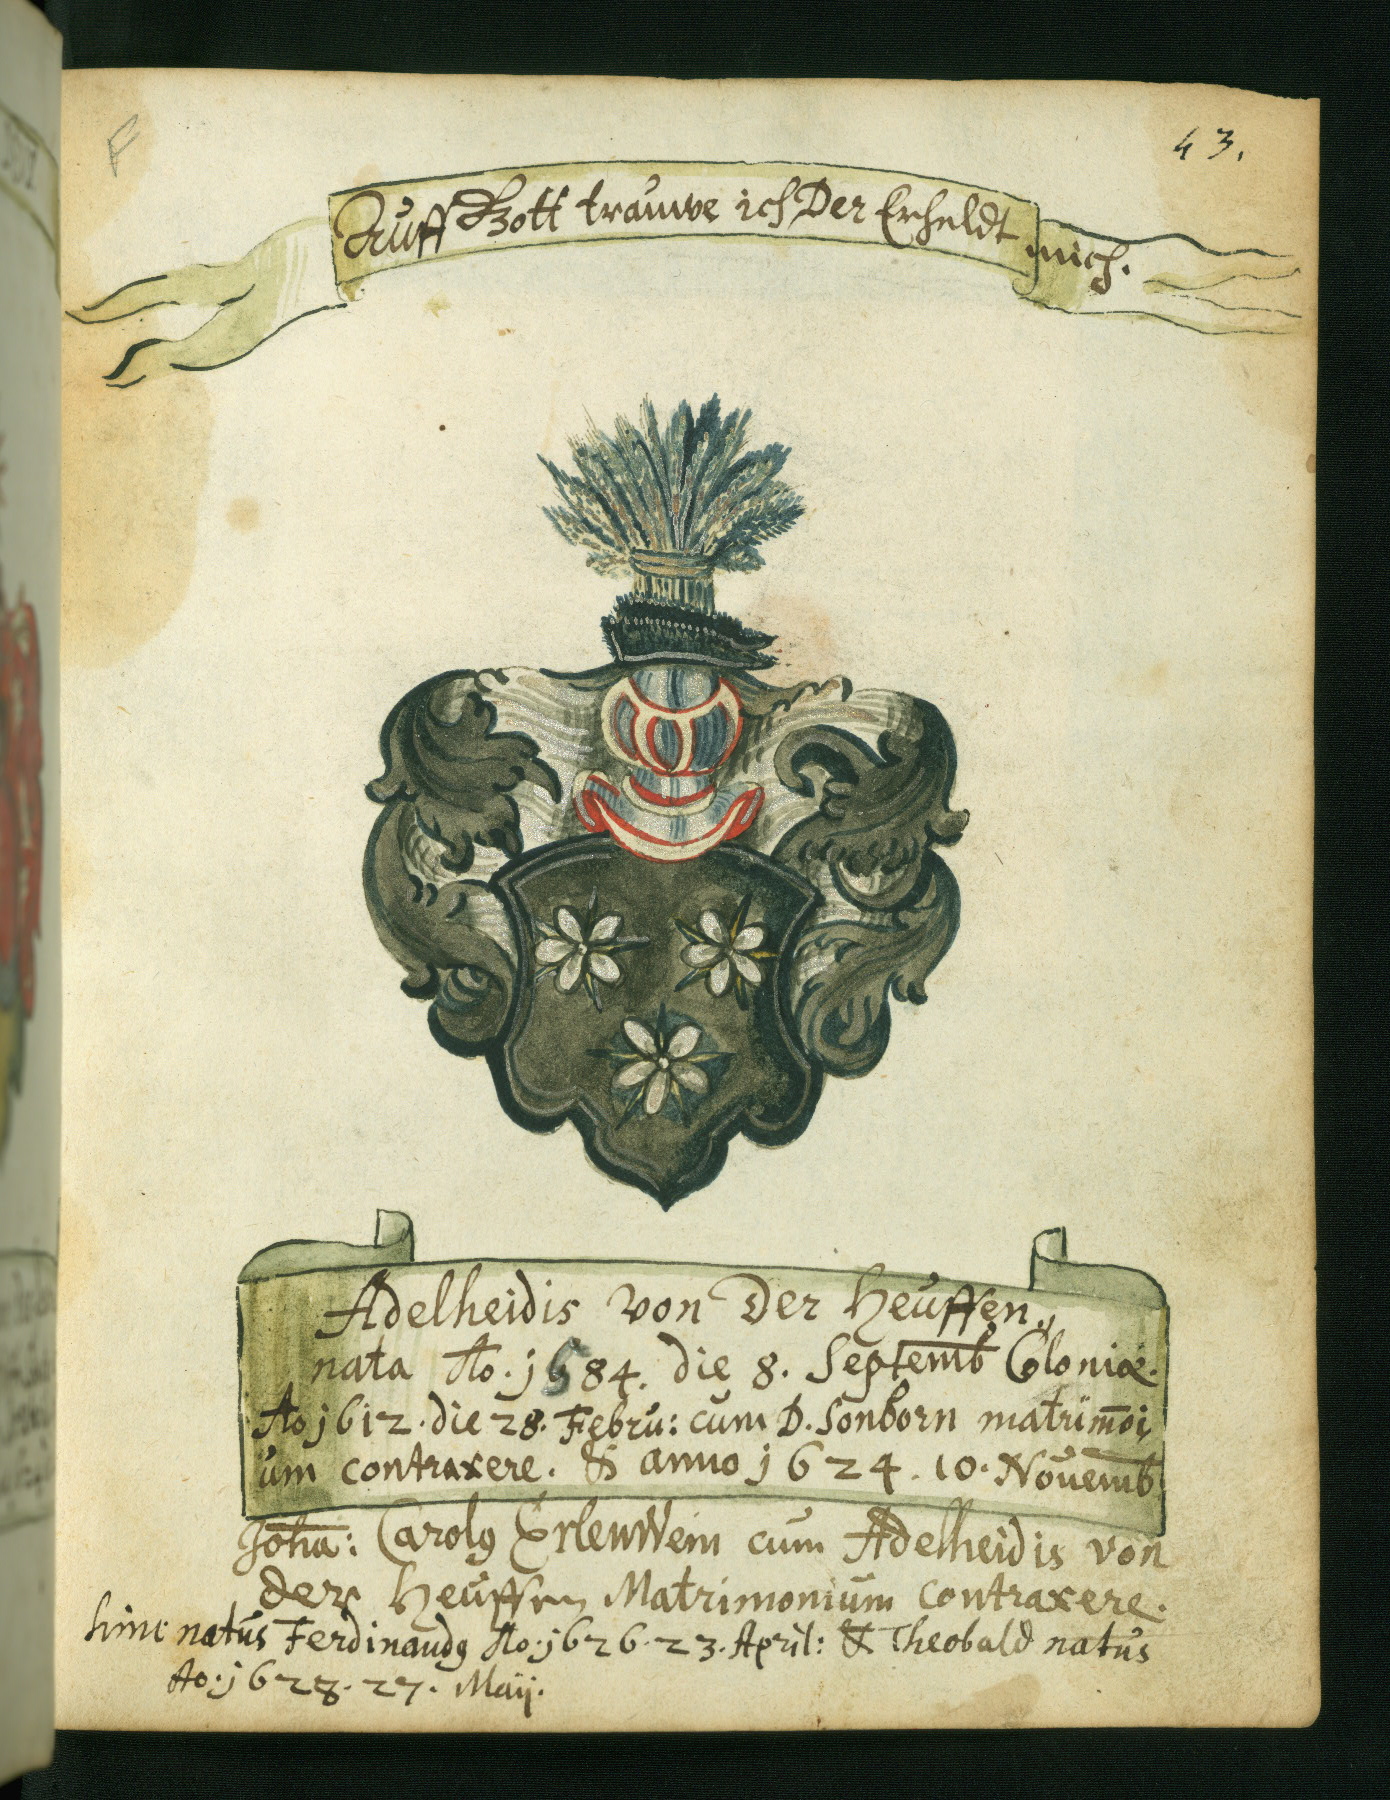 F
43.
Auff Gott trauwe ich Der Erheldt mich.
Adelheidis von Der Heuffen,
nata Ao. 1584. die 8. Septemb Coloniæ.
Ao 1612. die 28. Febru: cum D. Sonborn matrim̄oi
um contraxere. & anno 1624. 10. Novemb
Joha: Carolꝰ Erlenwein cum Adelheidis von
der Heuffen Matrimonium contraxere.
hinc natus Ferdinandꝰ Ao. 1626. 23. April: & Theobald natus
Ao. 1628. 27. Maij.